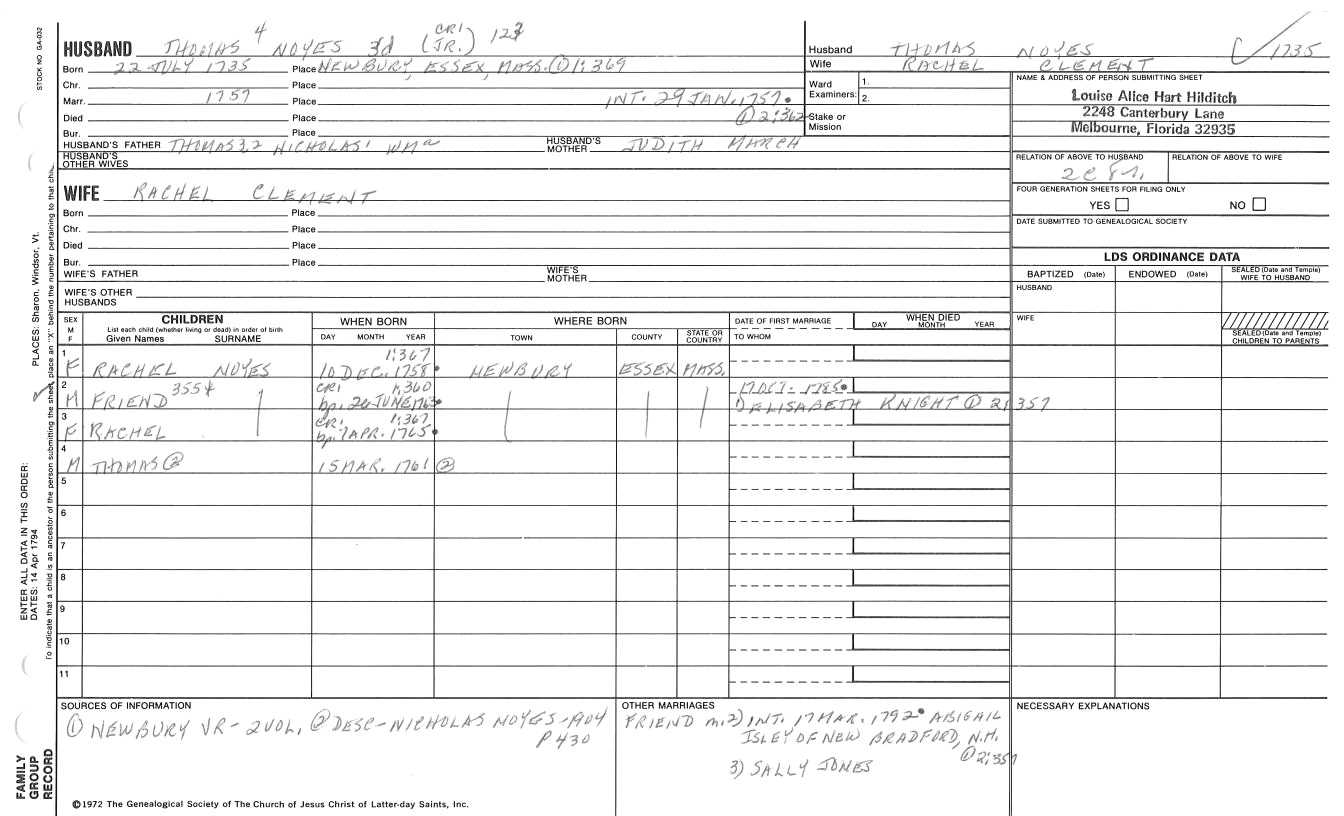 STOCK NO. GA-032
HUSBAND THOMAS 4 NOYES 3d (CR1 JR.) 123
Born 22 JULY 1735 Place NEWBURY, ESSEX, MASS. ① 1:369
Chr. Place
Marr. 1757 Place INT. 29 JAN. 1757.
Died Place ① 2:362
Bur. Place
HUSBAND'S FATHER THOMAS 3,2 NICHOLAS' WMª HUSBAND'S MOTHER JUDITH MARCH
HUSBAND'S OTHER WIVES
Husband THOMAS NOYES 1735
Wife RACHEL CLEMENT
Ward Examiners: 1.
2.
Stake or Mission
NAME & ADDRESS OF PERSON SUBMITTING SHEET
Louise Alice Hart Hilditch
2248 Canterbury Lane
Melbourne, Florida 32935
RELATION OF ABOVE TO HUSBAND RELATION OF ABOVE TO WIFE
FOUR GENERATION SHEETS FOR FILING ONLY
YES NO
DATE SUBMITTED TO GENEALOGICAL SOCIETY
WIFE RACHEL CLEMENT
Born Place
Chr. Place
Died Place
Bur. Place
WIFE'S FATHER WIFE'S MOTHER
WIFE'S OTHER HUSBANDS
LDS ORDINANCE DATA
BAPTIZED (Date) ENDOWED (Date) SEALED (Date and Temple) WIFE TO HUSBAND
HUSBAND
WIFE
SEALED (Date and Temple) CHILDREN TO PARENTS
SEX M F
CHILDREN
List each child (whether living or dead) in order of birth
Given Names SURNAME
WHEN BORN
DAY MONTH YEAR
WHERE BORN
TOWN COUNTY STATE OR COUNTRY
DATE OF FIRST MARRIAGE
TO WHOM
WHEN DIED
DAY MONTH YEAR
1 1:367
F RACHEL NOYES 10 DEC. 1758. NEWBURY ESSEX MASS.
2 355+ CR1 1,360 17 OCT. 1785.
M FRIEND bp. 26 JUNE 1763. 1) ELISABETH KNIGHT ① 2:357
3 CR1 1:367
F RACHEL bp. 7 APR. 1765.
4
M THOMAS ② 15 MAR. 1761 ②
5
6
7
8
9
10
11
SOURCES OF INFORMATION
① NEWBURY VR - 2 VOL, ② DESC - NICHOLAS NOYES - 1904
P 430
OTHER MARRIAGES
FRIEND m. 2) INT. 17 MAR. 1792. ABIGAIL
ISLEY OF NEW BRADFORD, N.H.
① 2:357
3) SALLY JONES
NECESSARY EXPLANATIONS
©1972 The Genealogical Society of The Church of Jesus Christ of Latter-day Saints, Inc.
FAMILY GROUP RECORD
ENTER ALL DATA IN THIS ORDER:
DATES: 14 Apr 1794
PLACES: Sharon, Windsor, Vt.
To indicate that a child is an ancestor of the person submitting the sheet, place an "X" behind the number pertaining to that child.